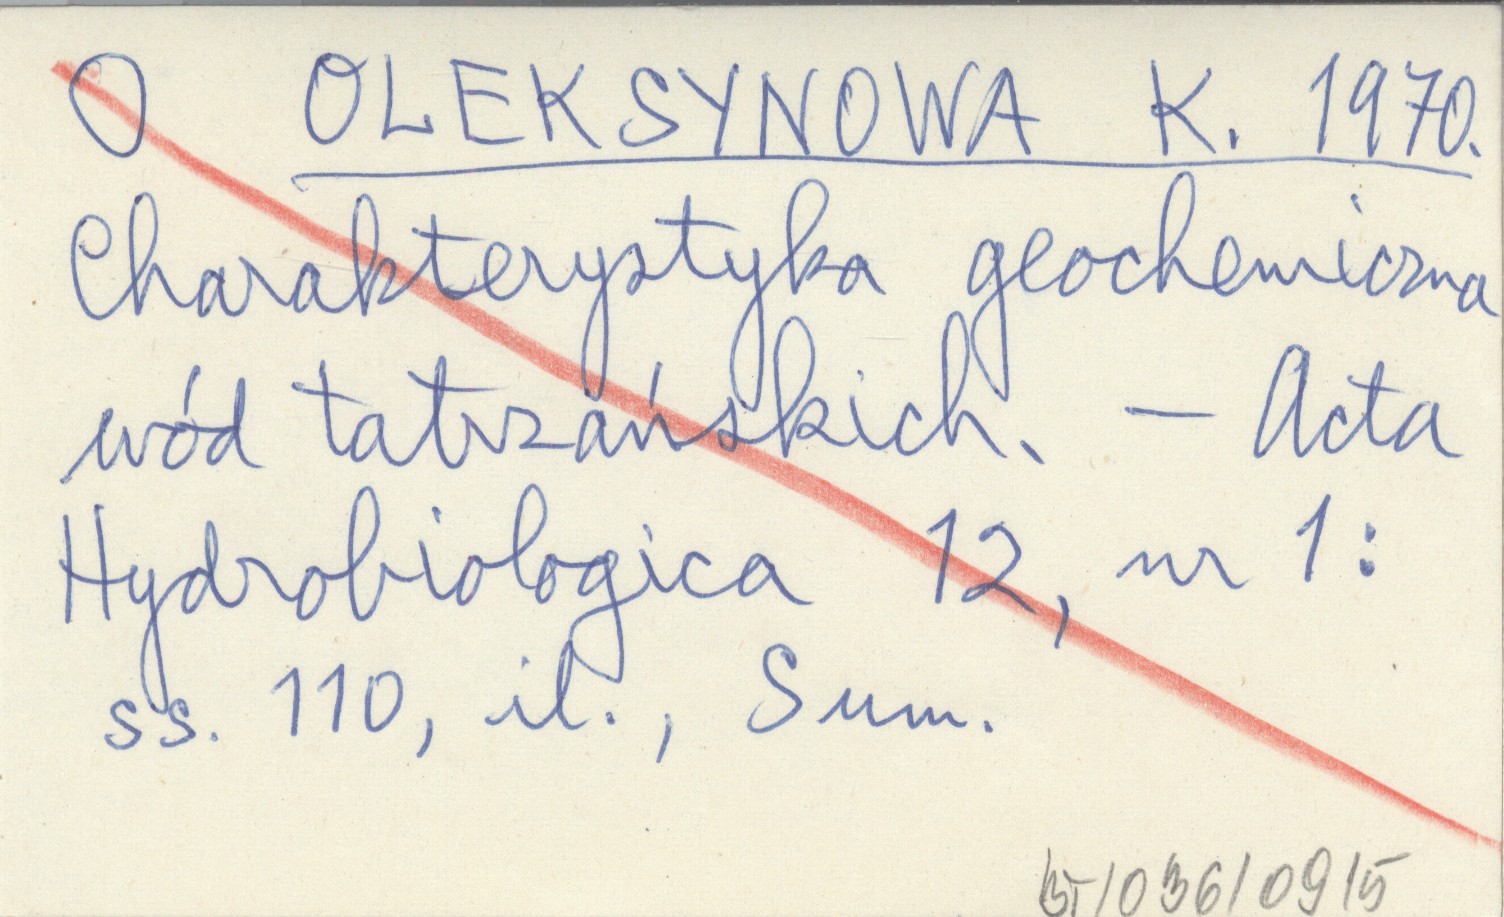 O OLEKSYNOWA K. 1970.
Charakterystyka geochemiczna
wód tatrzańskich. — Acta
Hydrobiologica 12, nr 1:
ss. 110, il., Sum.
/036/0915